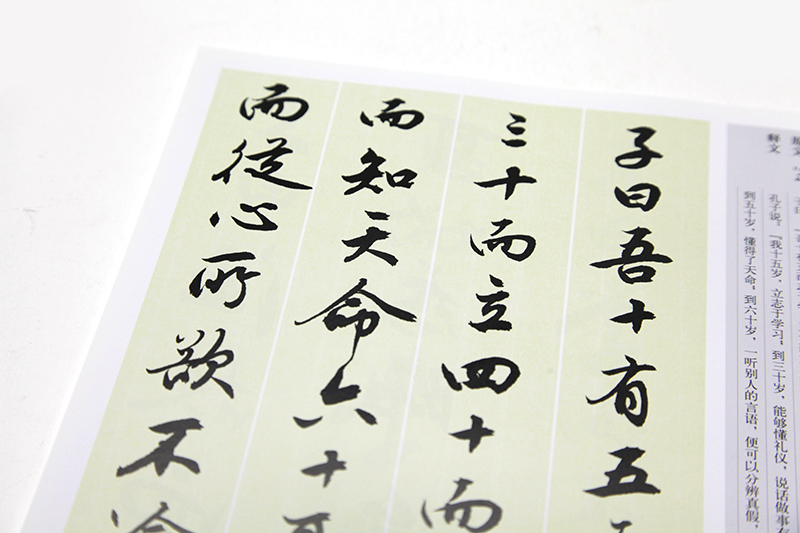 释文
孔子说：“我十五岁，立志于学习；到三十岁，能够懂礼仪，说话做事
到五十岁，懂得了天命；到六十岁，一听别人的言语，便可以分辨真假，
子曰吾十有五
三十而立四十而
而知天命六十
而從心所欲不